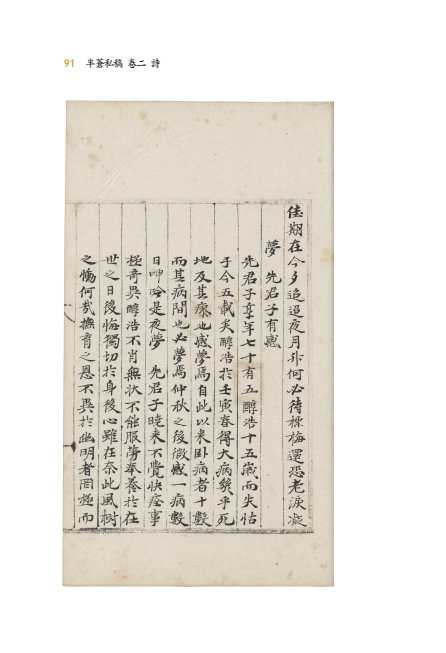 91 半蒼私稿 卷二 詩
佳期在今夕追迢夜月外何必待標梅還恐老淚凝
夢 先君子有感
先君子享年七十有五醇浩十五歲而失怙
于今五載矣醇浩於壬寅春得大病幾乎死
地及其瘳也感夢焉自此以來臥病者十數
而其病間也必夢焉仲秋之後微感一病數
日呻吟是夜夢 先君子曉來不覺怏怏事
極奇異醇浩不肖無狀不能服勞奉養於在
世之日後悔獨切於身後心雖在奈此風樹
之慟何哉撫育之恩不異於幽明者罔極而